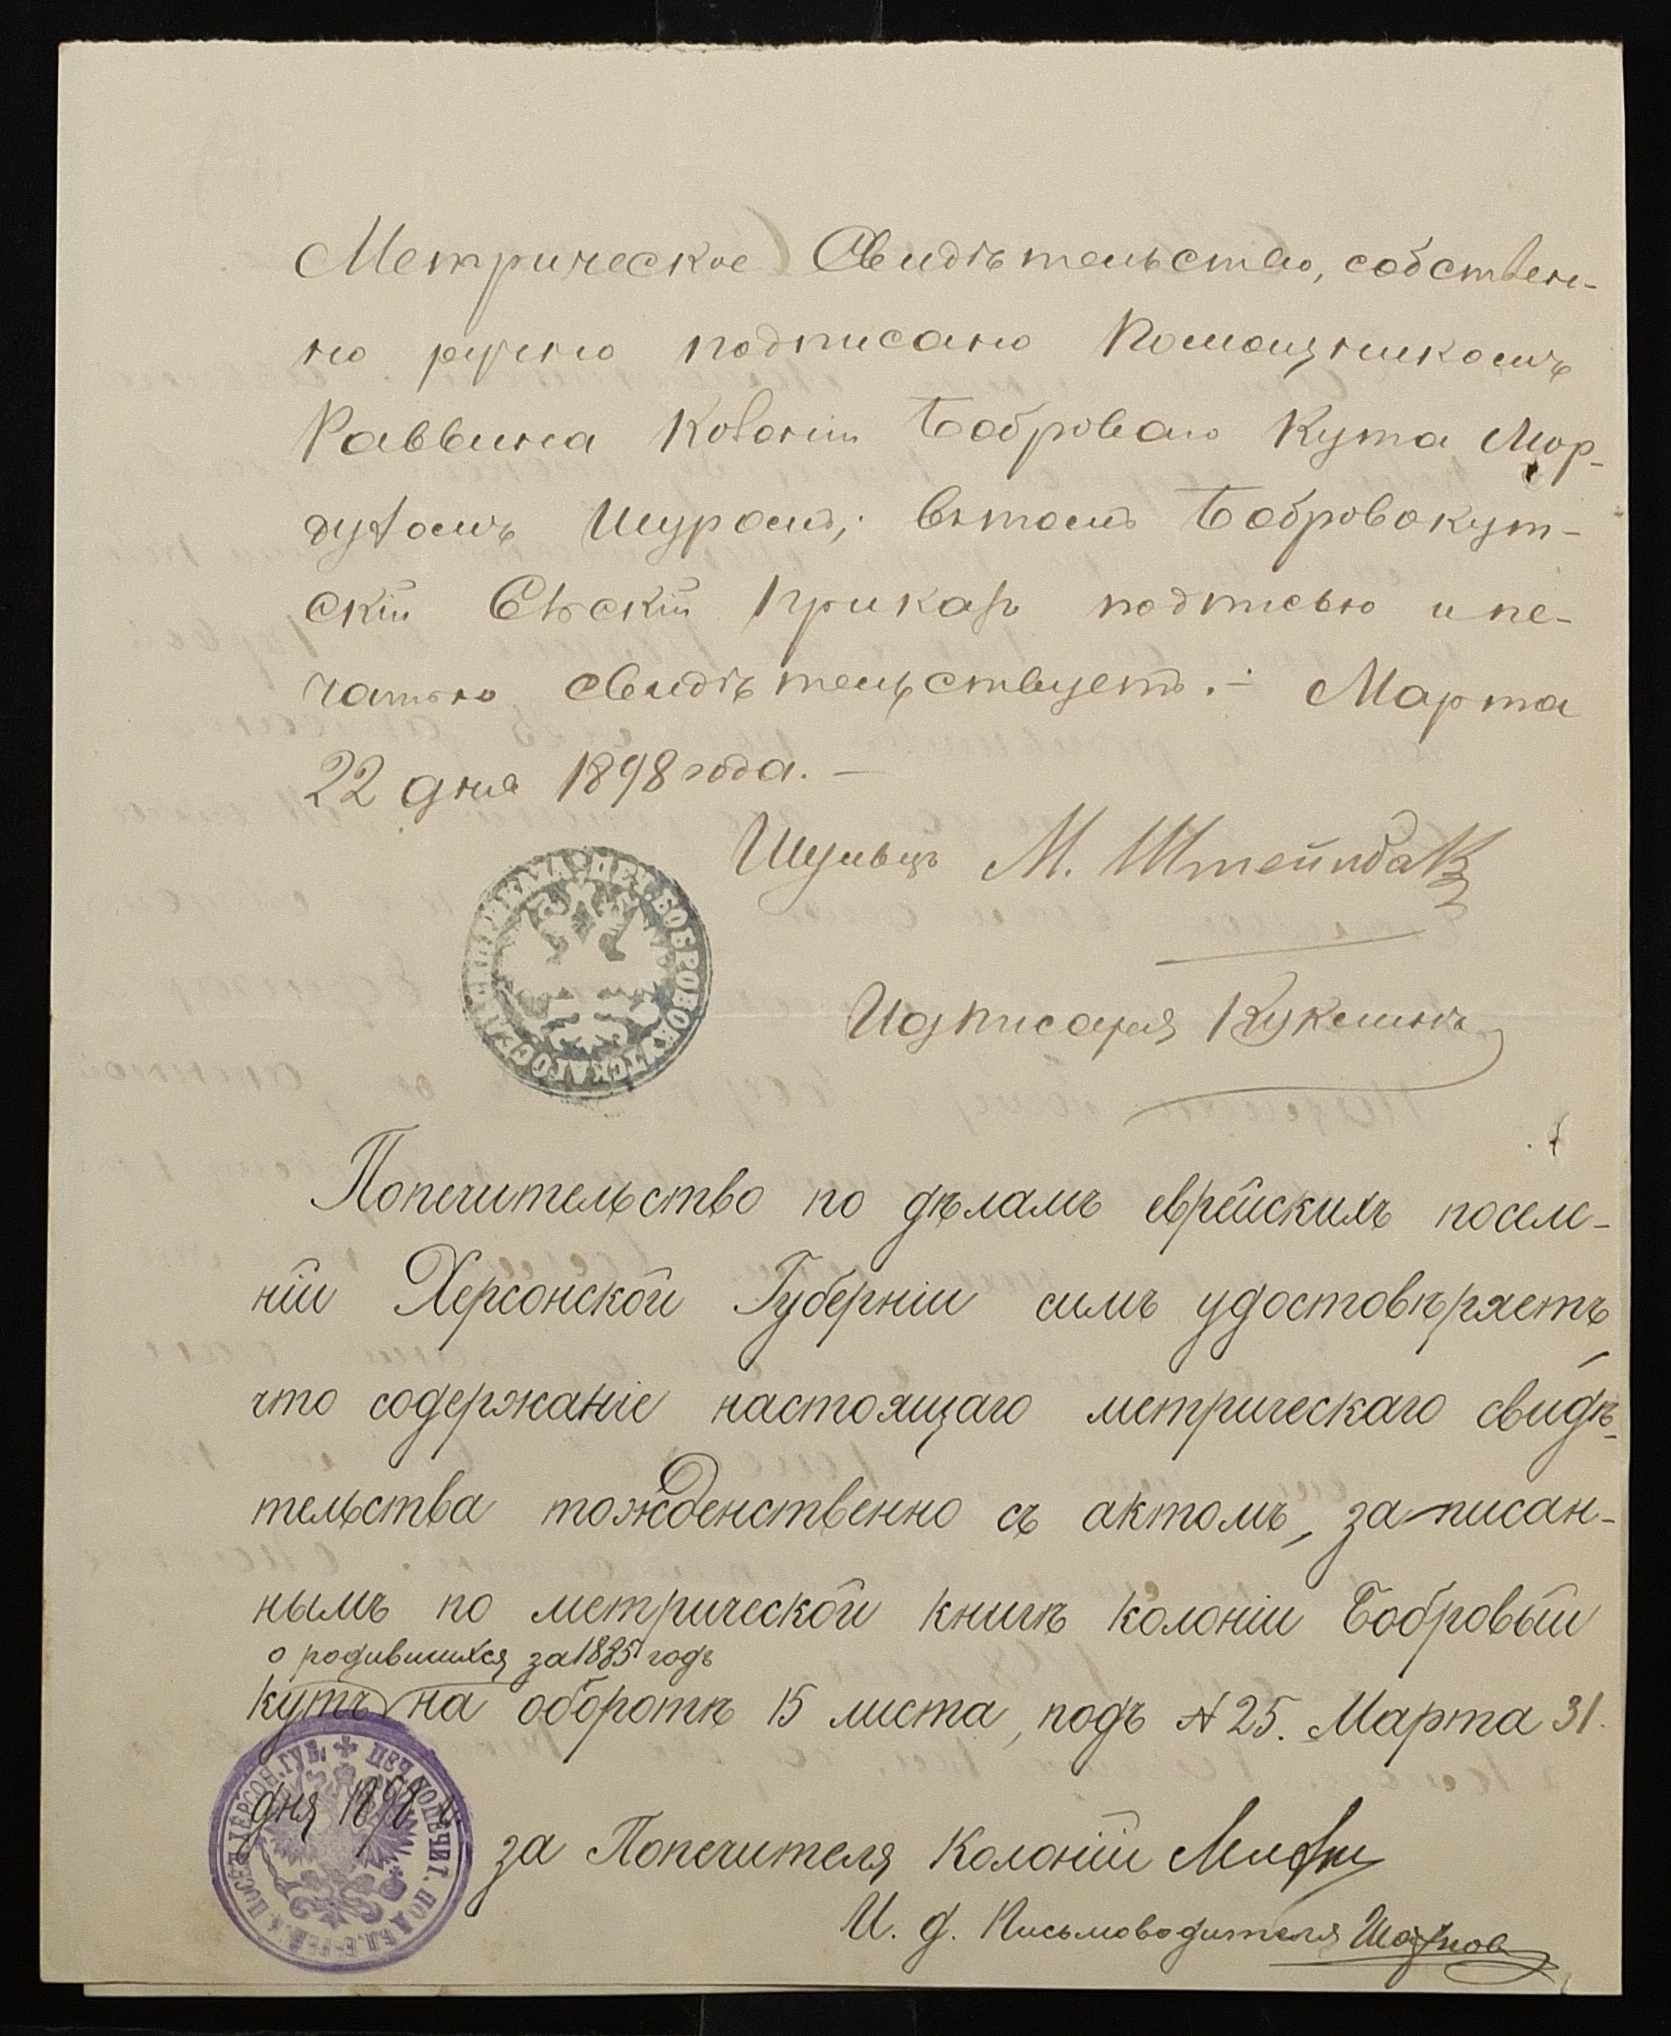 Метрическое Свидѣтельство, собствен-
но ручно подписано Помощникомъ
Раввина Колоніи Боброваго Кута Мор-
духомъ Шуромъ; вътомъ Бобровокут-
скій Сѣскій Приказъ подписью и пе-
чатью свидѣтельствуетъ. – Марта
22 дня 1898 года. –
Шульцъ М.
ПЕЧ. БОБРОВОКУТСКАГО СЕЛЬСК. ПРИКАЗА
Попечительство по дѣламъ еврейскихъ поселе-
ній Херсонской Губерніи симъ удостовѣряетъ,
что содержаніе настоящаго метрическаго свидѣ-
тельства тождественно съ актомъ, записан-
нымъ по метрической книгѣ колоніи Бобровый
о родившихся за 1885 годъ
кутъ на оборотѣ 15 листа, подъ № 25. Марта 31.
дня 1898 г.
за Попечителя Колоній
И. д. Письмоводителя
ПЕЧ. ПОПЕЧИТ. ПО ДѢЛ. ЕВР. ПОСЕЛ. ХЕРСОН. ГУБ.